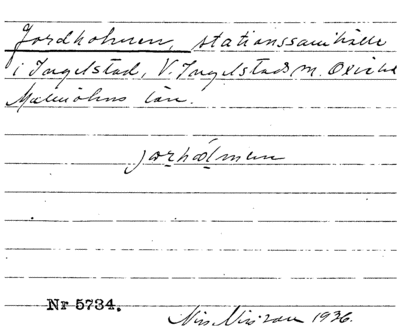 Jordholmen, stationssamhälle
i Ingelstad, V. Ingelstads m. Oxie hd
Malmöhus län.
jorhólmen
Nr 5734.
Nils Nilsson 1936.